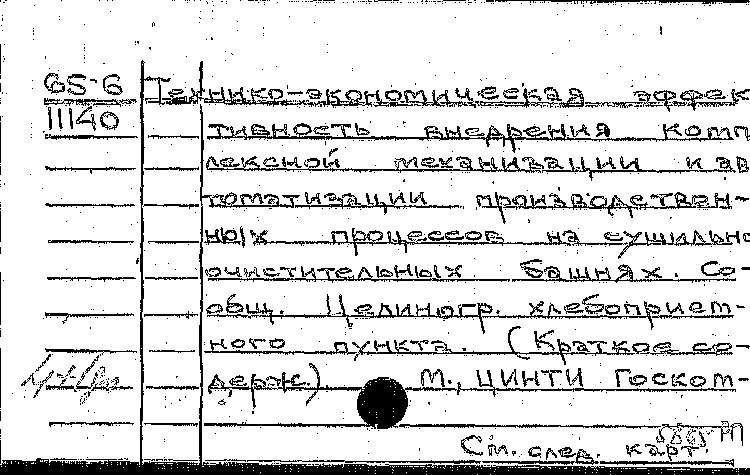 65-6 Технико-экономическая эффек
11140 тивность внедрения комп
лексной механизации и ав
томатизации производствен-
ных процессов на сушильно
очистительных башнях. Со-
общ. Целиногр. хлебоприем-
ного пункта. (Краткое со-
держ). М., ЦИНТИ Госком-
См. след. карт.